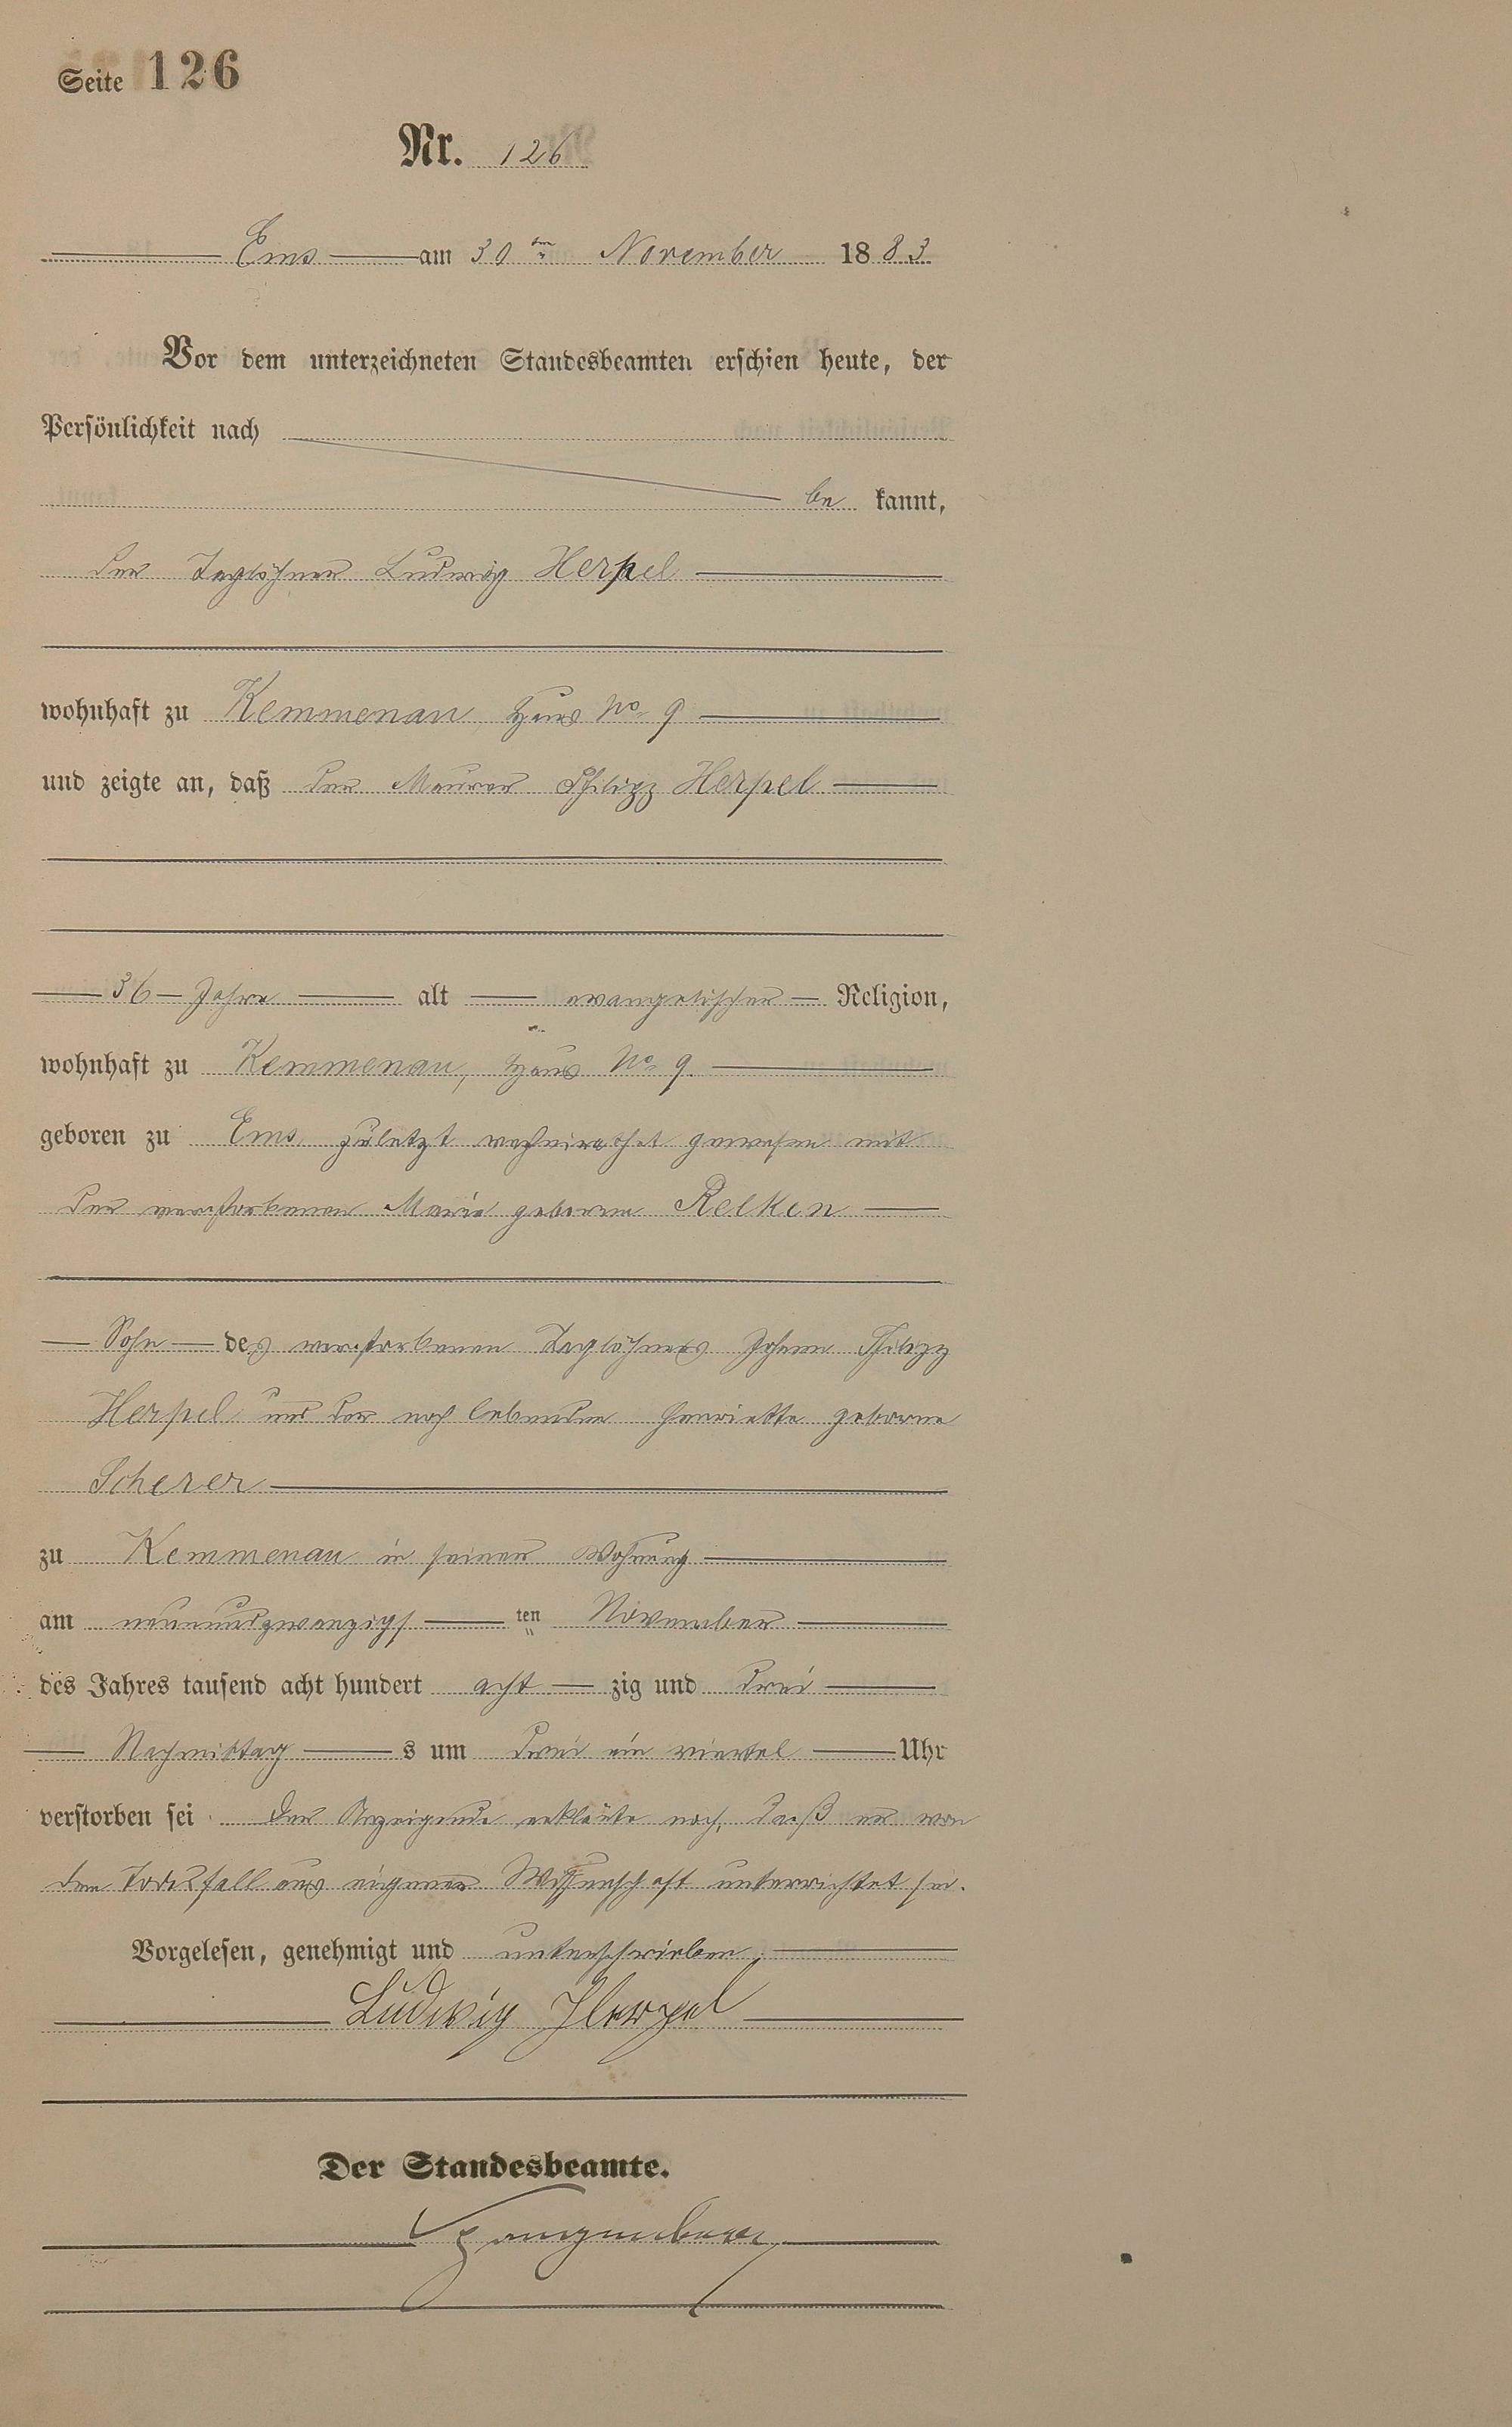 Seite 126
Nr. 126
Ems am 30ten November 1883
Vor dem unterzeichneten Standesbeamten erschien heute, der
Persönlichkeit nach
be kannt,
der Taglöhner Ludwig Herpel
wohnhaft zu Kemmenau, Haus No 9
und zeigte an, daß der Maurer Philipp Herpel
36 Jahre alt evangelischer Religion,
wohnhaft zu Kemmenau, Haus No 9.
geboren zu Ems, zuletzt verheirathet gewesen mit
der verstorbenen Marie geborene
Sohn des verstorbenen Taglöhners Johann Philipp
Herpel und der noch lebenden Henriette geborne
Scherer
zu Kemmenau in seiner Wohnung
am neunundzwanzigs ten November
des Jahres tausend acht hundert acht zig und drei
Nachmittag s um drei ein viertel Uhr
verstorben sei. Der Anzeigende erklärte noch, daß er von
dem Todesfall aus eigener Wissenschaft unterrichtet sei.
Vorgelesen, genehmigt und unterschrieben.
Ludwig Herpel
Der Standesbeamte.